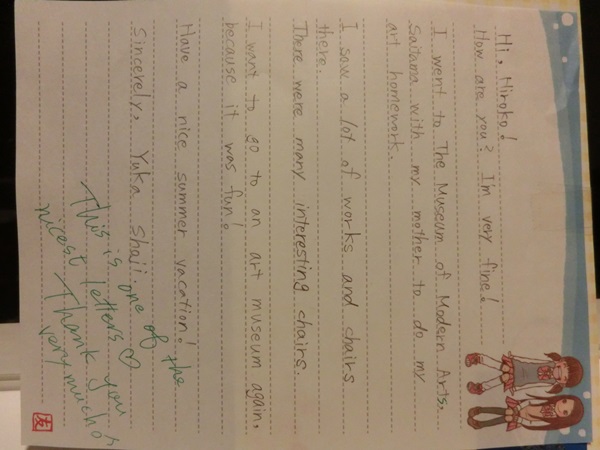 Hi, Hiroko!
How are you? I'm very fine!
I went to The Museum of Modern Arts,
Saitama with my mother to do my
art homework.
I saw a lot of works and chairs
there.
There were many interesting chairs.
I want to go to an art museum again,
because it was fun!
Have a nice summer vacation!
Sincerely, Yuka Shoji
This is one of the
nicest letters♡
Thank you
very much
友